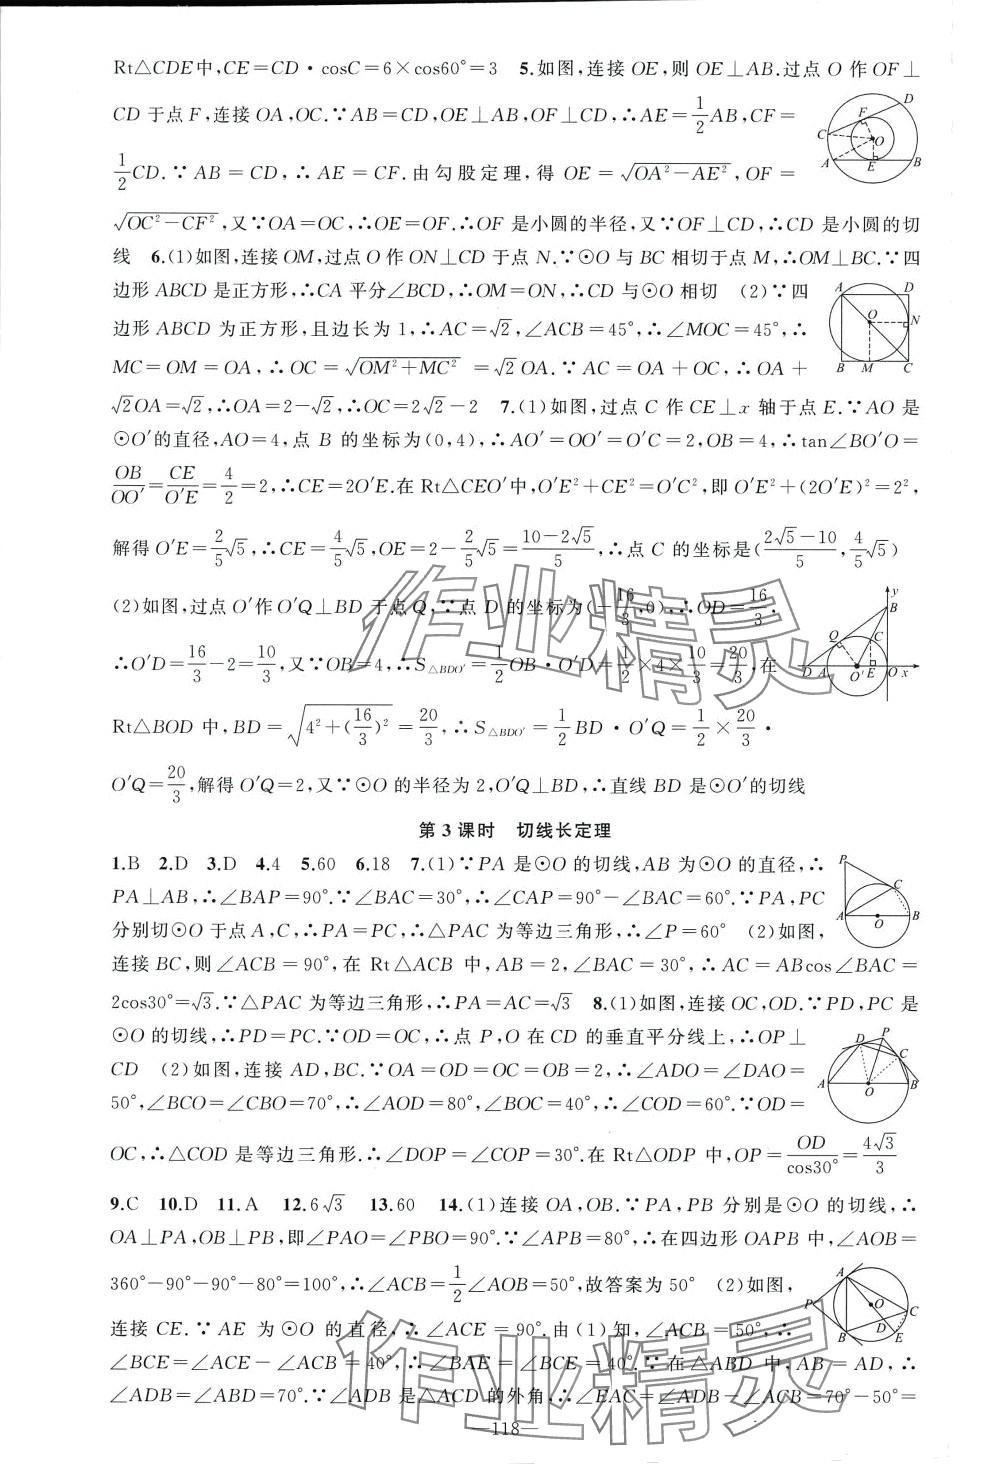 Rt△CDE中,CE=CD·cosC=6×cos60°=3　5.如图,连接OE,则OE⊥AB.过点O作OF⊥
CD于点F,连接OA,OC.∵AB=CD,OE⊥AB,OF⊥CD,∴AE=1/2AB,CF=
1/2CD.∵AB=CD,∴AE=CF.由勾股定理,得OE=√(OA²-AE²),OF=
√(OC²-CF²),又∵OA=OC,∴OE=OF.∴OF是小圆的半径,又∵OF⊥CD,∴CD是小圆的切
线　6.(1)如图,连接OM,过点O作ON⊥CD于点N.∵⊙O与BC相切于点M,∴OM⊥BC.∵四
边形ABCD是正方形,∴CA平分∠BCD,∴OM=ON,∴CD与⊙O相切　(2)∵四
边形ABCD为正方形,且边长为1,∴AC=√2,∠ACB=45°,∴∠MOC=45°,∴
MC=OM=OA,∴OC=√(OM²+MC²)=√2OA.∵AC=OA+OC,∴OA+
√2OA=√2,∴OA=2-√2,∴OC=2√2-2　7.(1)如图,过点C作CE⊥x轴于点E.∵AO是
⊙O′的直径,AO=4,点B的坐标为(0,4),∴AO′=OO′=O′C=2,OB=4,∴tan∠BO′O=
OB/OO′=CE/O′E=4/2=2,∴CE=2O′E.在Rt△CEO′中,O′E²+CE²=O′C²,即O′E²+(2O′E)²=2²,
解得O′E=2/5√5,∴CE=4/5√5,OE=2-2/5√5=(10-2√5)/5,∴点C的坐标是((2√5-10)/5,4/5√5)
(2)如图,过点O′作O′Q⊥BD于点Q,∵点D的坐标为(-16/3,0),∴OD=16/3.
∴O′D=16/3-2=10/3,又∵OB=4,∴S△BDO′=1/2OB·O′D=1/2×4×10/3=20/3,在
Rt△BOD中,BD=√(4²+(16/3)²)=20/3,∴S△BDO′=1/2BD·O′Q=1/2×20/3·
O′Q=20/3,解得O′Q=2,又∵⊙O的半径为2,O′Q⊥BD,∴直线BD是⊙O′的切线
第3课时　切线长定理
1.B　2.D　3.D　4.4　5.60　6.18　7.(1)∵PA是⊙O的切线,AB为⊙O的直径,∴
PA⊥AB,∴∠BAP=90°.∵∠BAC=30°,∴∠CAP=90°-∠BAC=60°.∵PA,PC
分别切⊙O于点A,C,∴PA=PC,∴△PAC为等边三角形,∴∠P=60°　(2)如图,
连接BC,则∠ACB=90°,在Rt△ACB中,AB=2,∠BAC=30°,∴AC=ABcos∠BAC=
2cos30°=√3.∵△PAC为等边三角形,∴PA=AC=√3　8.(1)如图,连接OC,OD.∵PD,PC是
⊙O的切线,∴PD=PC.∵OD=OC,∴点P,O在CD的垂直平分线上,∴OP⊥
CD　(2)如图,连接AD,BC.∵OA=OD=OC=OB=2,∴∠ADO=∠DAO=
50°,∠BCO=∠CBO=70°,∴∠AOD=80°,∠BOC=40°,∴∠COD=60°.∵OD=
OC,∴△COD是等边三角形.∴∠DOP=∠COP=30°.在Rt△ODP中,OP=OD/cos30°=4√3/3
9.C　10.D　11.A　12.6√3　13.60　14.(1)连接OA,OB.∵PA,PB分别是⊙O的切线,∴
OA⊥PA,OB⊥PB,即∠PAO=∠PBO=90°.∵∠APB=80°,∴在四边形OAPB中,∠AOB=
360°-90°-90°-80°=100°,∴∠ACB=1/2∠AOB=50°,故答案为50°　(2)如图,
连接CE.∵AE为⊙O的直径,∴∠ACE=90°.由(1)知,∠ACB=50°,∴
∠BCE=∠ACE-∠ACB=40°,∴∠BAE=∠BCE=40°.∵在△ABD中,AB=AD,∴
∠ADB=∠ABD=70°.∵∠ADB是△ACD的外角,∴∠EAC=∠ADB-∠ACB=70°-50°=
—118—
作业精灵
作业精灵